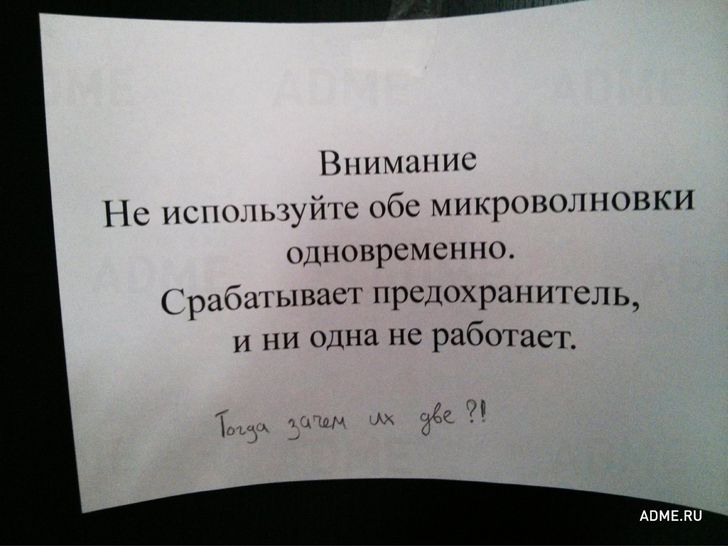 Внимание
Не используйте обе микроволновки
одновременно.
Срабатывает предохранитель,
и ни одна не работает.
Тогда зачем их две?!
ADME.RU